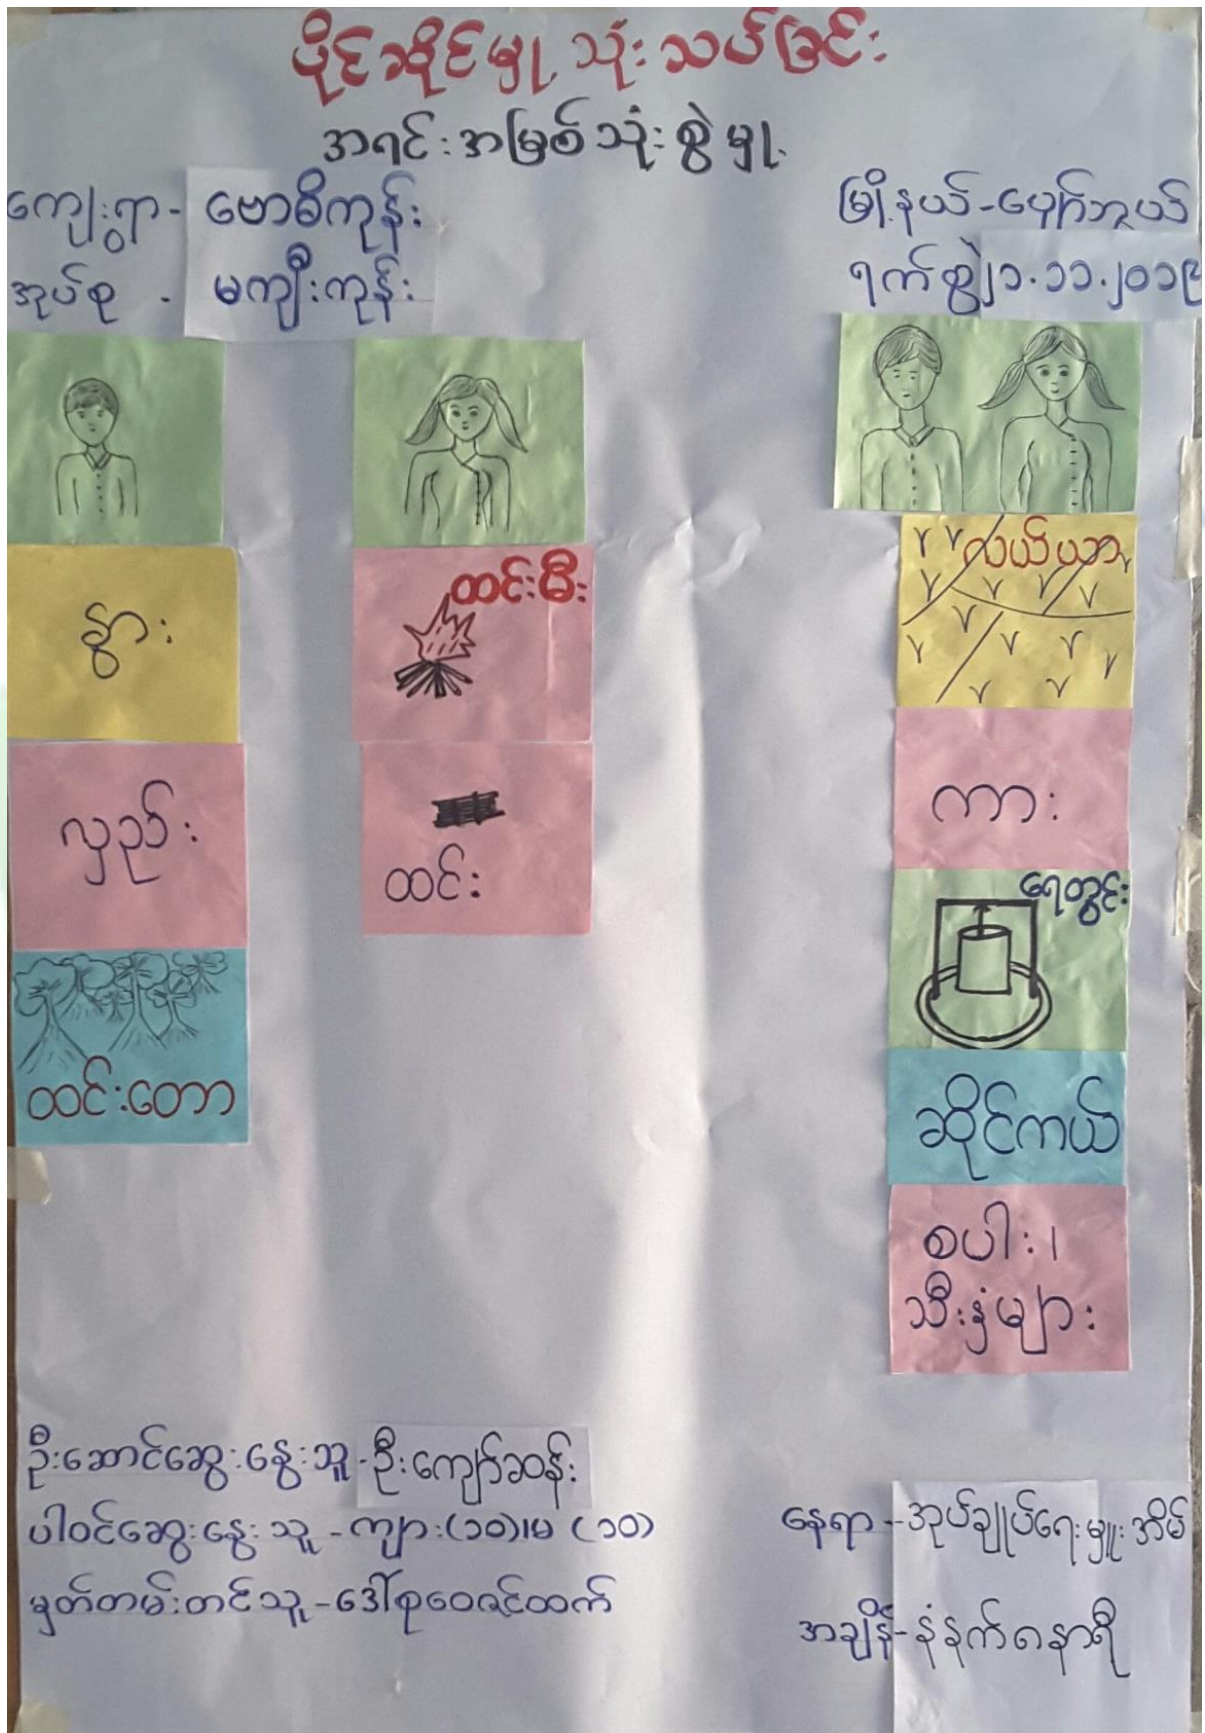 ပိုင်ဆိုင်မှု သုံးသပ်ခြင်း
အရင်းအမြစ်သုံးစွဲမှု
ကျေးရွာ - ဗောဓိကုန်း
အုပ်စု - မကျီးကုန်း
မြို့နယ် - ပျော်ဘွယ်
ရက်စွဲ ၂၁.၁၁.၂၀၁၉
နွား
လှည်း
ထင်းတော
ထင်းမီး
ထင်း
လယ်ယာ
ကား
ရေတွင်း
ဆိုင်ကယ်
စပါး၊
သီးနှံများ
ဦးဆောင်ဆွေးနွေးသူ - ဦးကျော်ခဝန်း
ပါဝင်ဆွေးနွေးသူ - ကျား(၁၀)၊မ (၁၀)
မှတ်တမ်းတင်သူ - ဒေါ်စုဝေဇင်ထက်
နေရာ - အုပ်ချုပ်ရေးမှူးအိမ်
အချိန် - နံနက်၈နာရီ